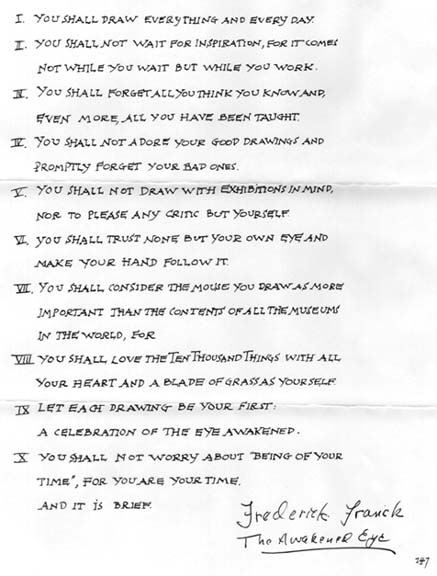 I. YOU SHALL DRAW EVERYTHING AND EVERY DAY.
II. YOU SHALL NOT WAIT FOR INSPIRATION, FOR IT COMES
NOT WHILE YOU WAIT BUT WHILE YOU WORK.
III. YOU SHALL FORGET ALL YOU THINK YOU KNOW AND,
EVEN MORE, ALL YOU HAVE BEEN TAUGHT.
IV. YOU SHALL NOT ADORE YOUR GOOD DRAWINGS AND
PROMPTLY FORGET YOUR BAD ONES.
V. YOU SHALL NOT DRAW WITH EXHIBITIONS IN MIND,
NOR TO PLEASE ANY CRITIC BUT YOURSELF.
VI. YOU SHALL TRUST NONE BUT YOUR OWN EYE AND
MAKE YOUR HAND FOLLOW IT.
VII. YOU SHALL CONSIDER THE MOUSE YOU DRAW AS MORE
IMPORTANT THAN THE CONTENTS OF ALL THE MUSEUMS
IN THE WORLD, FOR
VIII. YOU SHALL LOVE THE TEN THOUSAND THINGS WITH ALL
YOUR HEART AND A BLADE OF GRASS AS YOURSELF.
IX LET EACH DRAWING BE YOUR FIRST:
A CELEBRATION OF THE EYE AWAKENED.
X YOU SHALL NOT WORRY ABOUT "BEING OF YOUR
TIME", FOR YOU ARE YOUR TIME.
AND IT IS BRIEF.
Frederick Franck
The Awakened Eye
147